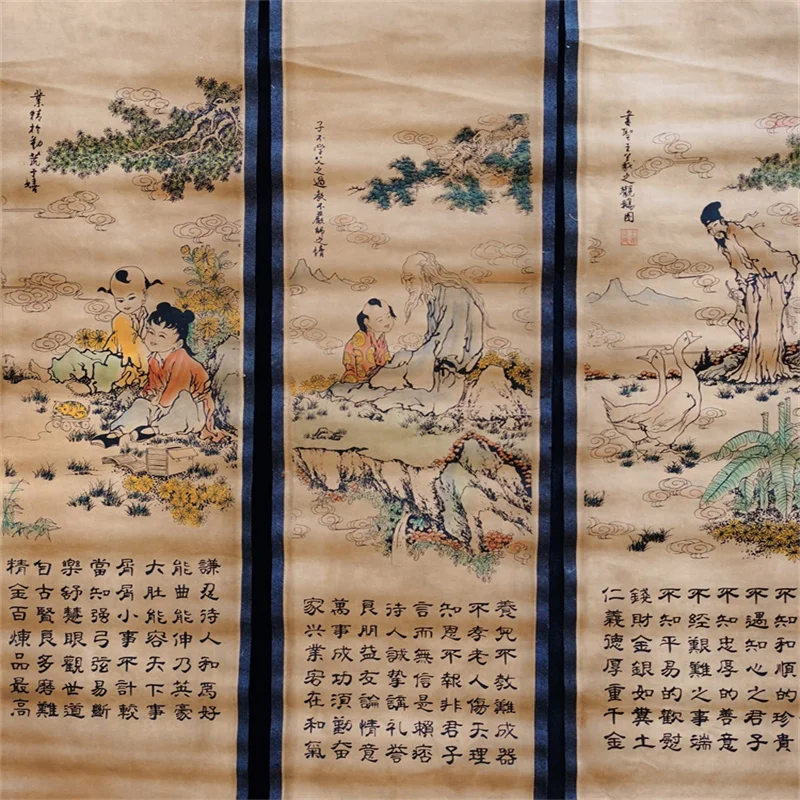 業精於勤荒于嬉
謙忍待人和為好
能曲能伸乃英豪
大肚能容天下事
屑屑小事不計較
當知强弓弦易斷
樂舒慧眼觀世道
自古賢良多磨難
精金百煉品最高
子不學父之過教不嚴師之惰
養兒不教難成器
不孝老人傷天理
知恩不報非君子
言而無信是賴痞
待人誠摯講礼譽
良朋益友論情意
萬事成功須勤奮
家兴業宏在和氣
書聖王羲之觀鵝图
不知和順的珍貴
不遇知心之君子
不知忠厚的善意
不經艱難之事端
不知平易的歡慰
錢財金銀如糞土
仁義德厚重千金